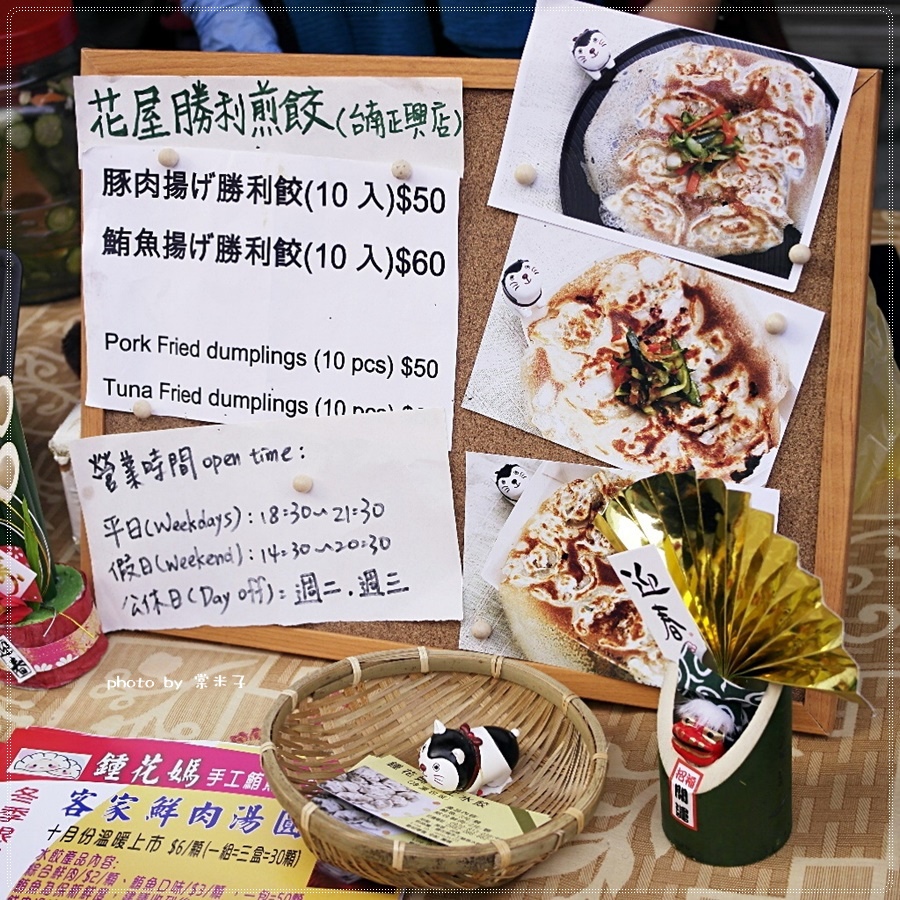 花屋勝利煎餃(台南正興店)
豚肉揚げ勝利餃(10 入)$50
鮪魚揚げ勝利餃(10 入)$60
Pork Fried dumplings (10 pcs) $50
Tuna Fried dumplings (10 pcs)
營業時間 open time:
平日(Weekdays):18:30~21:30
假日(Weekend):14:30~20:30
公休日(Day off):週二.週三
迎春
招福
開運
photo by 紫米子
鍾花媽 手工鮪
冬季限
客家鮮肉湯圓
十月份溫暖上市 $6/顆(一組=三盒=30顆)
水餃產品內容:
綜合鮮肉/$2/顆、鮪魚口味/$3/顆
鍾花
水餃